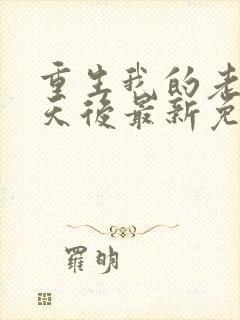 重生我的老
天後最新免
羅明